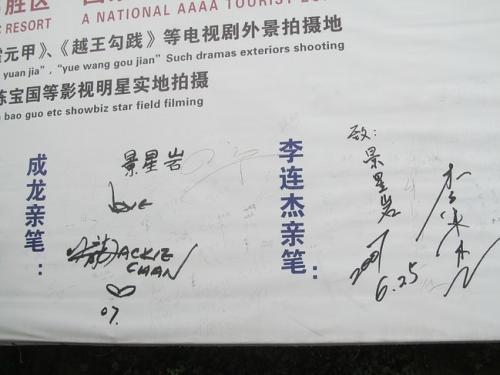 胜区
C RESORT
A NATIONAL AAAA TOURIST
元甲》、《越王勾践》等电视剧外景拍摄地
yuan jia”, “yue wang gou jian” Such dramas exteriors shooting
陈宝国等影视明星实地拍摄
bao guo etc showbiz star field filming
成龙亲笔：
景星岩
Love
JACKIE
CHAN
07.
李连杰亲笔：
致：
景星岩
2007
6.25